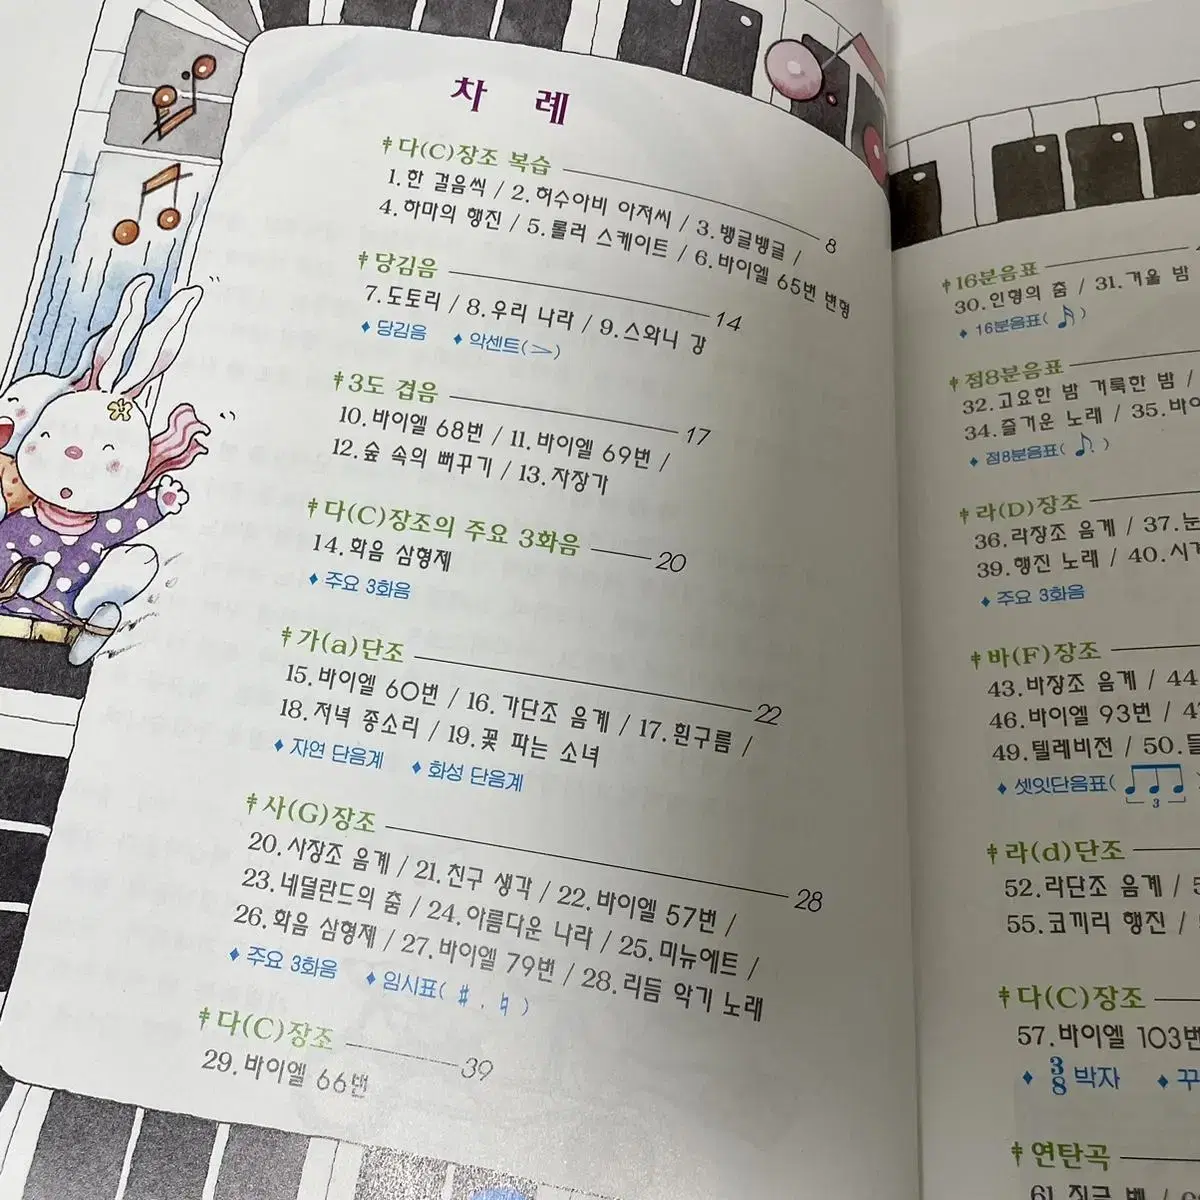 차 례
다(C)장조 복습 8
1. 한 걸음씩 / 2. 허수아비 아저씨 / 3. 뱅글뱅글 /
4. 하마의 행진 / 5. 롤러 스케이트 / 6. 바이엘 65번 변형
당김음 14
7. 도토리 / 8. 우리 나라 / 9. 스와니 강
♦ 당김음 ♦ 악센트(>)
3도 겹음 17
10. 바이엘 68번 / 11. 바이엘 69번 /
12. 숲 속의 뻐꾸기 / 13. 자장가
다(C)장조의 주요 3화음 20
14. 화음 삼형제
♦ 주요 3화음
가(a)단조 22
15. 바이엘 60번 / 16. 가단조 음계 / 17. 흰구름 /
18. 저녁 종소리 / 19. 꽃 파는 소녀
♦ 자연 단음계 ♦ 화성 단음계
사(G)장조 28
20. 사장조 음계 / 21. 친구 생각 / 22. 바이엘 57번 /
23. 네덜란드의 춤 / 24. 아름다운 나라 / 25. 미뉴에트 /
26. 화음 삼형제 / 27. 바이엘 79번 / 28. 리듬 악기 노래
♦ 주요 3화음 ♦ 임시표( ♯ , ♮ )
다(C)장조 39
29. 바이엘 66번
16분음표
30. 인형의 춤 / 31. 겨울 밤
♦ 16분음표( )
점8분음표
32. 고요한 밤 거룩한 밤 /
34. 즐거운 노래 / 35. 바이
♦ 점8분음표( )
라(D)장조
36. 라장조 음계 / 37. 눈
39. 행진 노래 / 40. 시계
♦ 주요 3화음
바(F)장조
43. 바장조 음계 / 44
46. 바이엘 93번 / 47
49. 텔레비전 / 50.
♦ 셋잇단음표( 3
라(d)단조
52. 라단조 음계 / 5
55. 코끼리 행진 /
다(C)장조
57. 바이엘 103번
♦ 3/8 박자 ♦ 꾸
연탄곡
61.